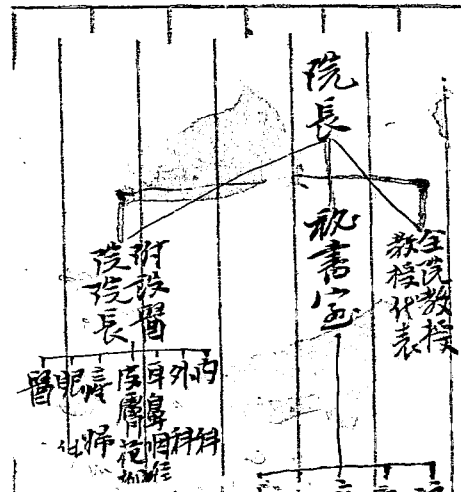 院長
全院教授
教授代表
秘書室
附設醫
院院長
內科
外科
耳鼻咽喉
皮膚花柳
產婦
眼
醫